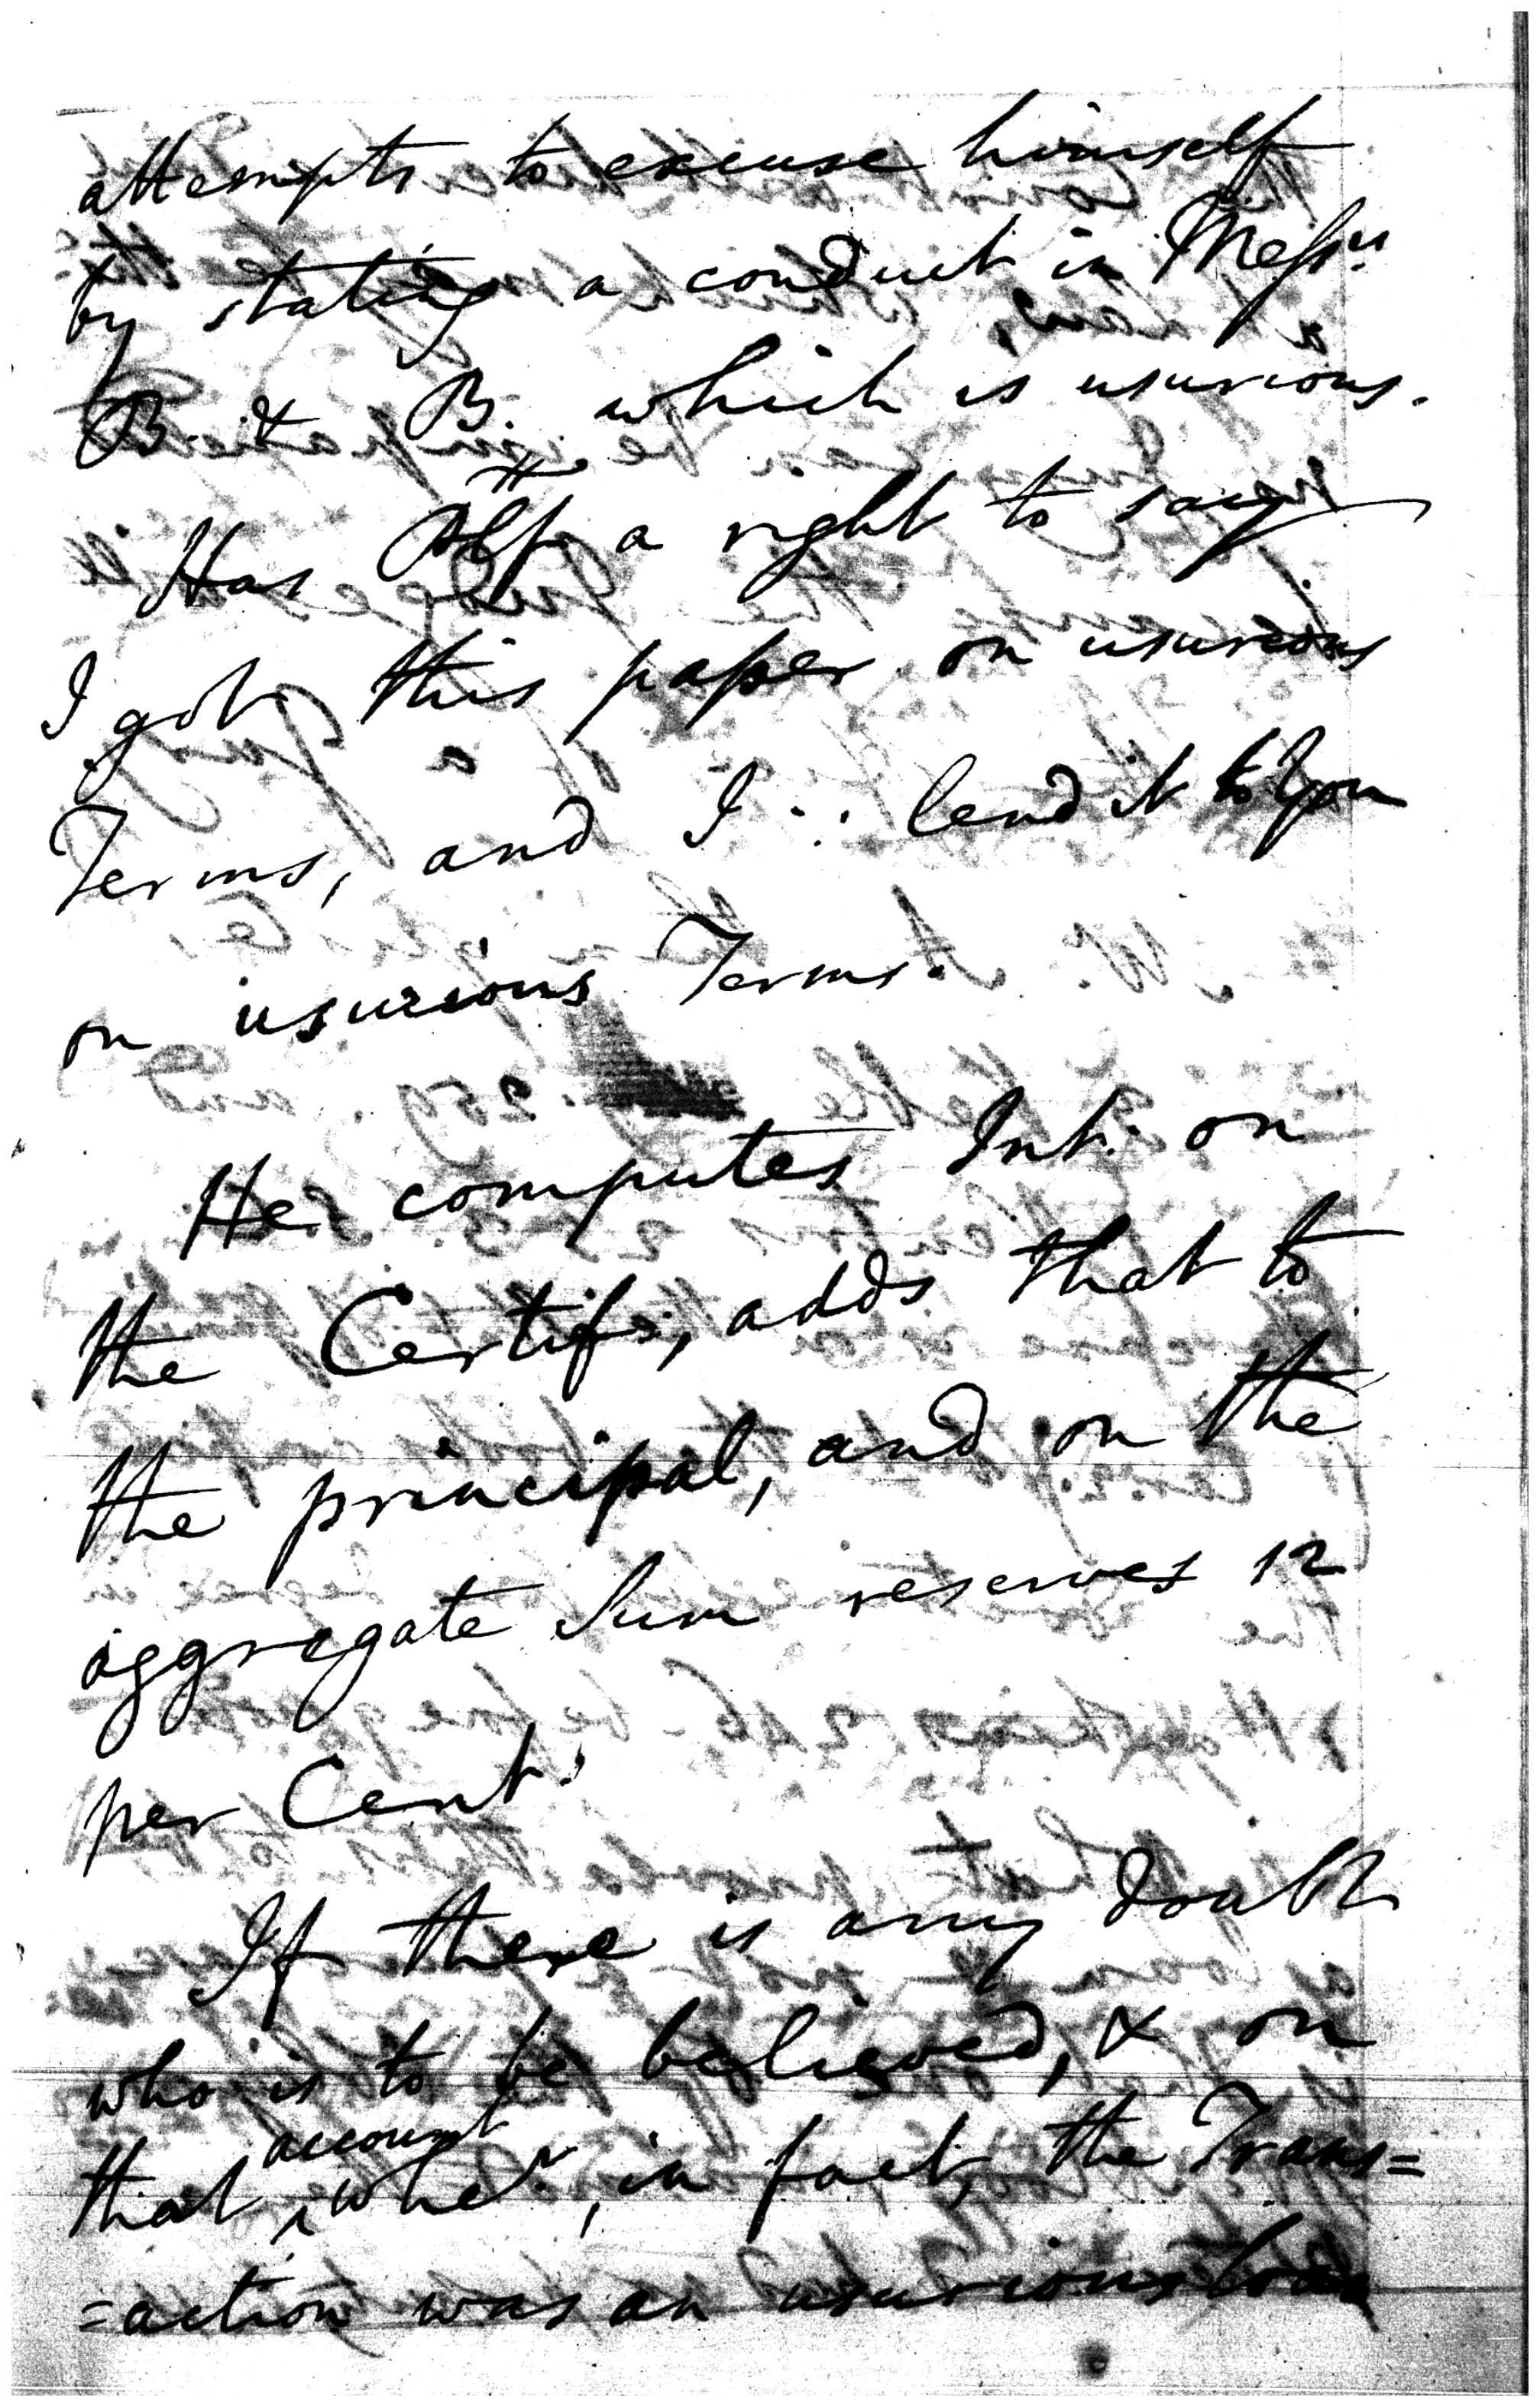 attempts to excuse himself
by stating a conduct in Messrs.
B. & B. which is usurious.
Has Plff a right to say
I got this paper on usurious
Terms, and I ∴ lend it to You
on usurious Terms.
He computes Int. on
the Certifs, adds that to
the principal, and on the
aggregate Sum reserves 12
per Cent.
If there is any doubt
who is to be believed, & on
that account, wher, in fact, the Trans=
=action was an usurious loan